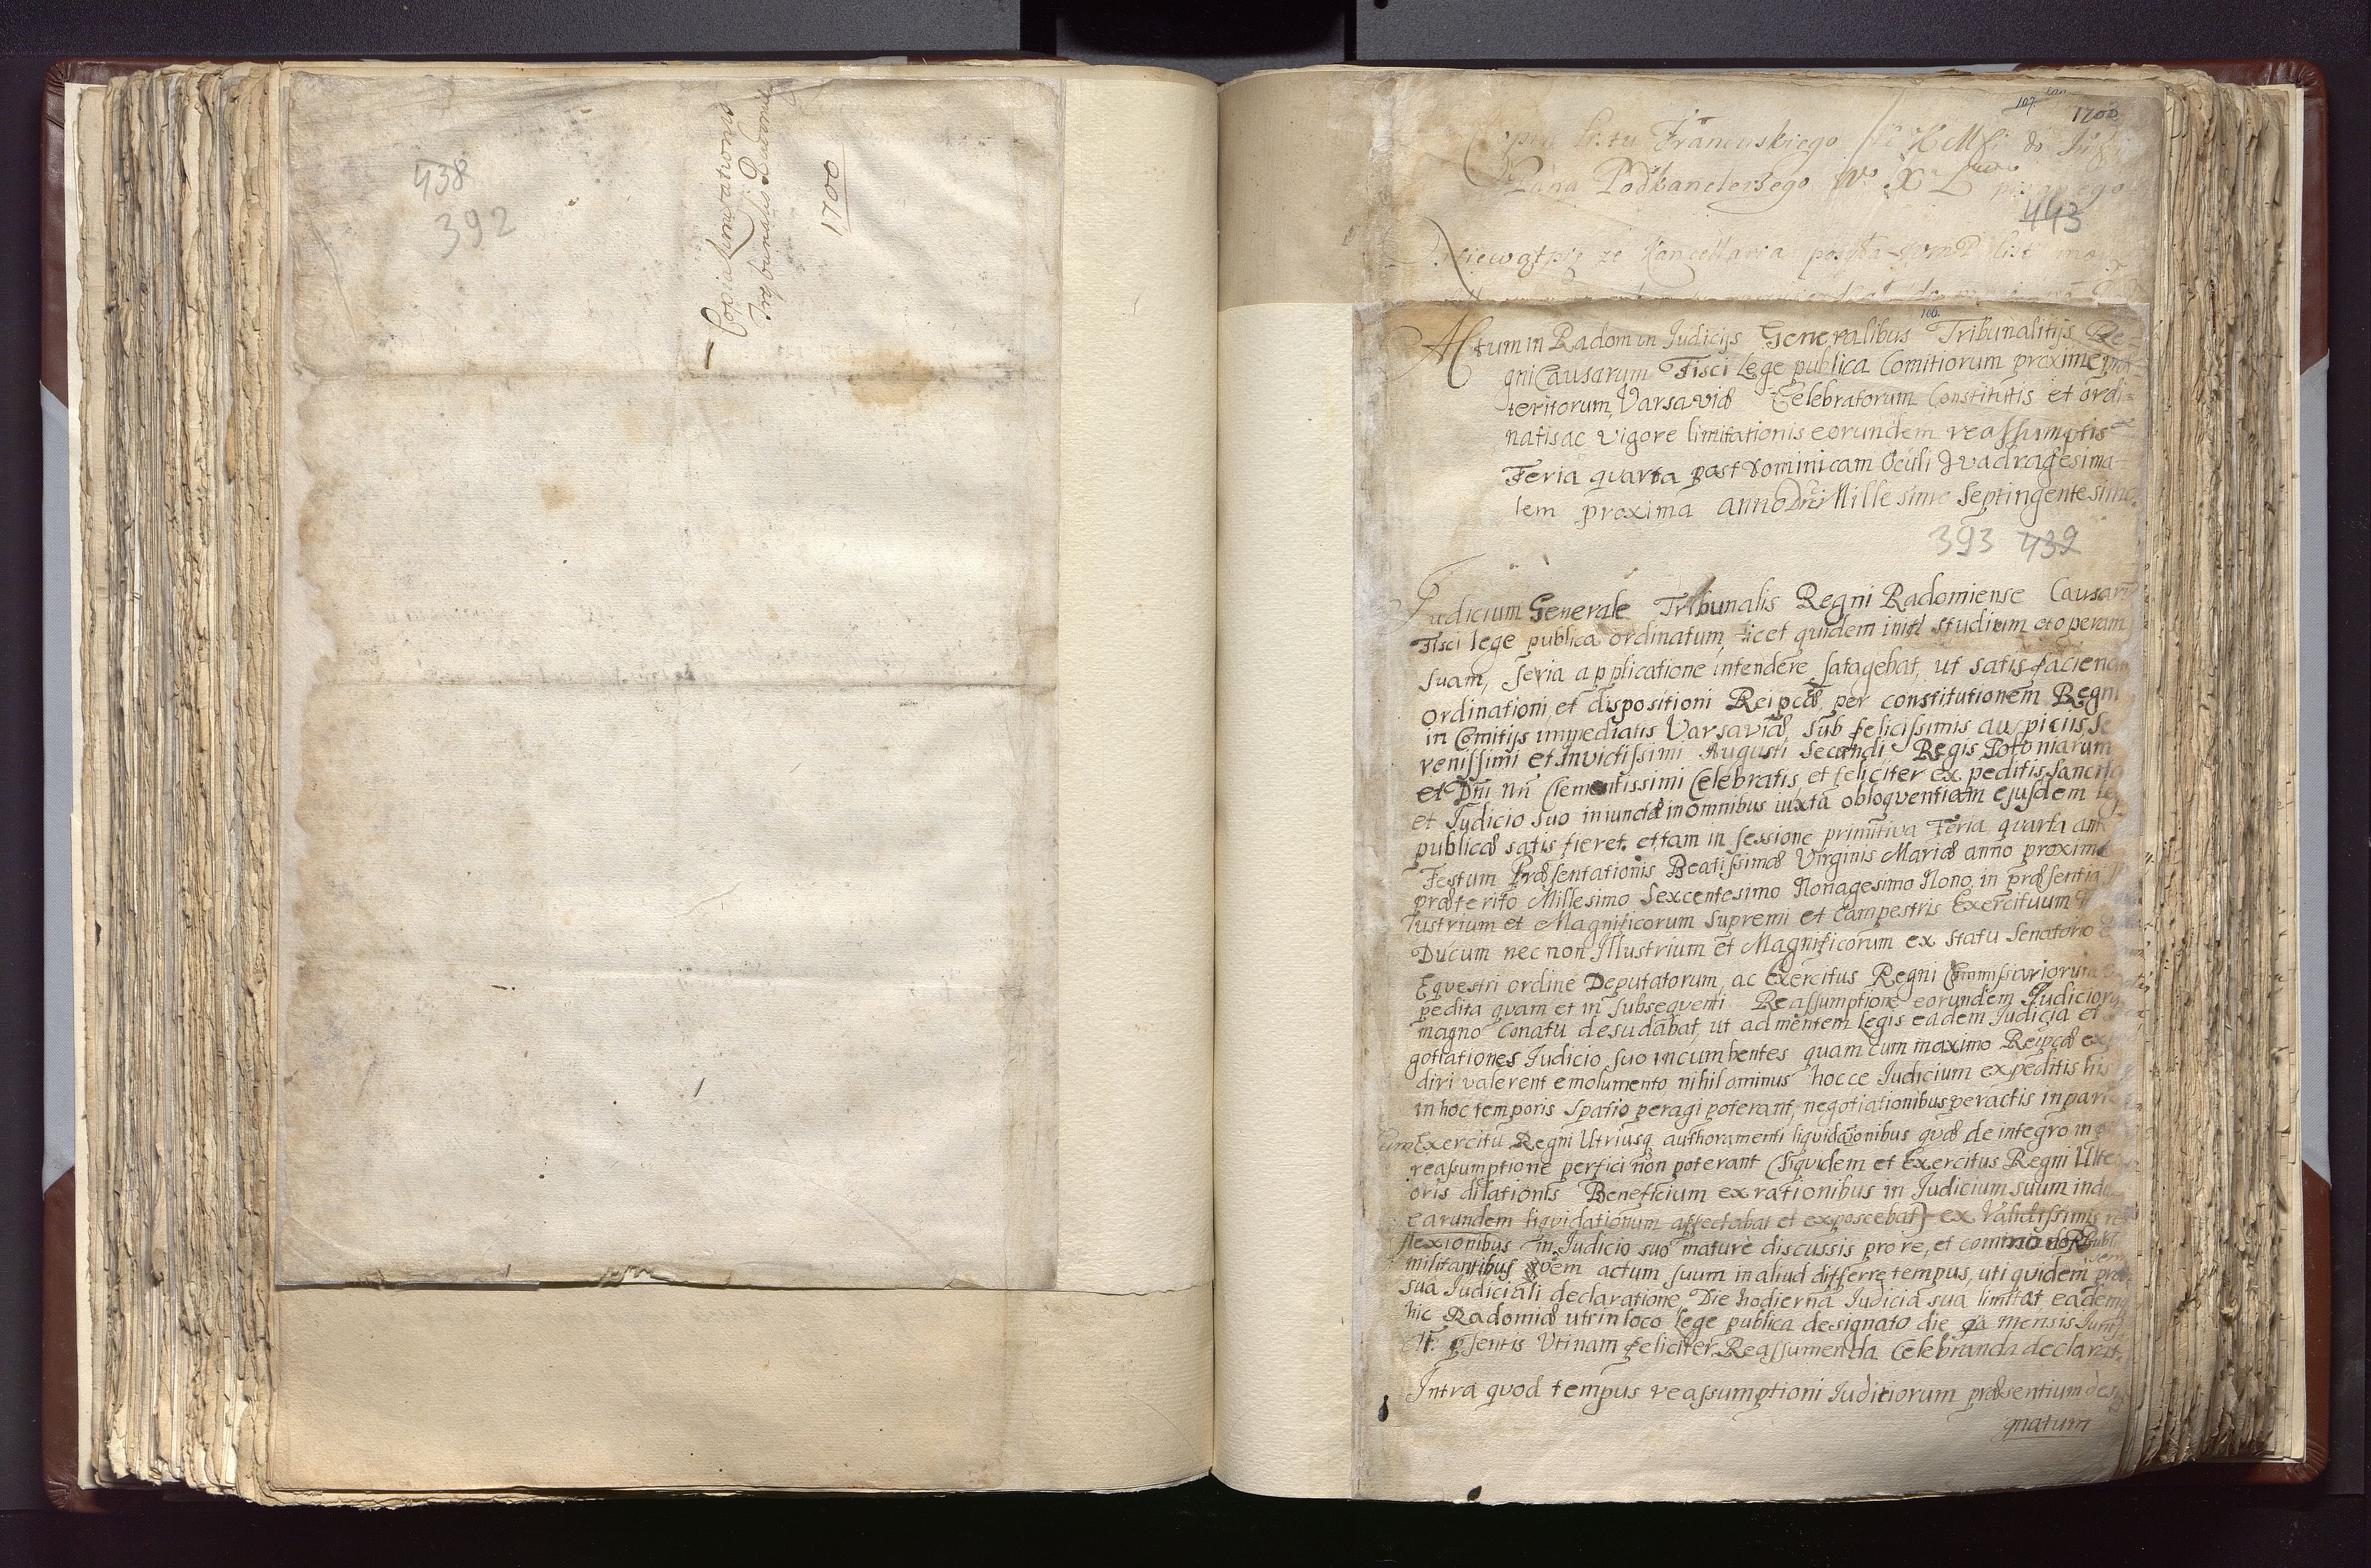 438
392
Copia Limitationis
Tribunalis Radomien
1700
107.
1700
Copia Listu Francuskiego do
Pana Podkanclerzego
443
Niewątpię że Kancellaria list
100.
Actum in Radom in Judicijs Generalibus Tribunalitijs Re-
gni Causarum Fisci Lege publica Comitiorum proxime præ
teritorum, Varsaviæ Celebratorum Constitutis et ordi-
natis ac vigore limitationis eorundem reassumptis
Feria quarta post Dominicam Oculi Quadragesima-
lem proxima anno Dni Millesimo Septingentesimo.
393 439
Judicium Generale Tribunalis Regni Radomiense Causarū
Fisci lege publica ordinatum, licet quidem studium et operam
suam, seria applicatione intendere satagebat, ut satisfaciendo
ordinationi, et dispositioni Reipcæ, per constitutionem Regni
in Comitijs immediatis Varsaviæ, sub felicissimis auspiciis, Se
renissimi et Invictissimi Augusti Secundi Regis Poloniarum
et Dni nri Clementissimi Celebratis, et feliciter expeditis, sancitæ
et Judicio suo iniunctæ in omnibus iuxta obloquentiam ejusdem
publicæ satis fieret. et tam in sessione primitiva Feria quarta ante
Festum Præsentationis Beatissimæ Virginis Mariæ anno proxime
præterito Millesimo Sexcentesimo Nonagesimo Nono, in præsentia
lustrium et Magnificorum Supremi et Campestris Exercituum
Ducum nec non Illustrium et Magnificorum ex statu Senatorio
Equestri ordine Deputatorum, ac Exercitus Regni Commissariorum
pedita quam et in subsequenti Reassumptione eorundem Judiciorū
magno conatu desudabat, ut ad mentem legis eadem Judicia et
gottationes Judicio suo incumbentes quam cum maximo Reipcæ
diri valerent emolumento nihilominus hocce Judicium expeditis his
in hoc temporis spatio peragi poterant, negotiationibus peractis in
cum Exercitu Regni Utriusq authoramenti liquidationibus quæ de integro in
reassumptione perfici non poterant (siquidem et Exercitus Regni
oris dilationis Beneficium ex rationibus in Judicium suum
earundem liquidationum affectabat et exposcebat) ex validissimis re
flexionibus in Judicio suo mature discussis pro re, et commodo
militantibus quem actum suum in aliud differre tempus, uti quidem
sua Judiciali declaratione Die hodierna Judicia sua limitat, eademq
hic Radomiæ uti in loco lege publica designato die 9a mensis Junij
psentis Utinam feliciter Reassumenda Celebranda declarat.
Intra quod tempus reassumptioni Judiciorum præsentium desi
gnatum